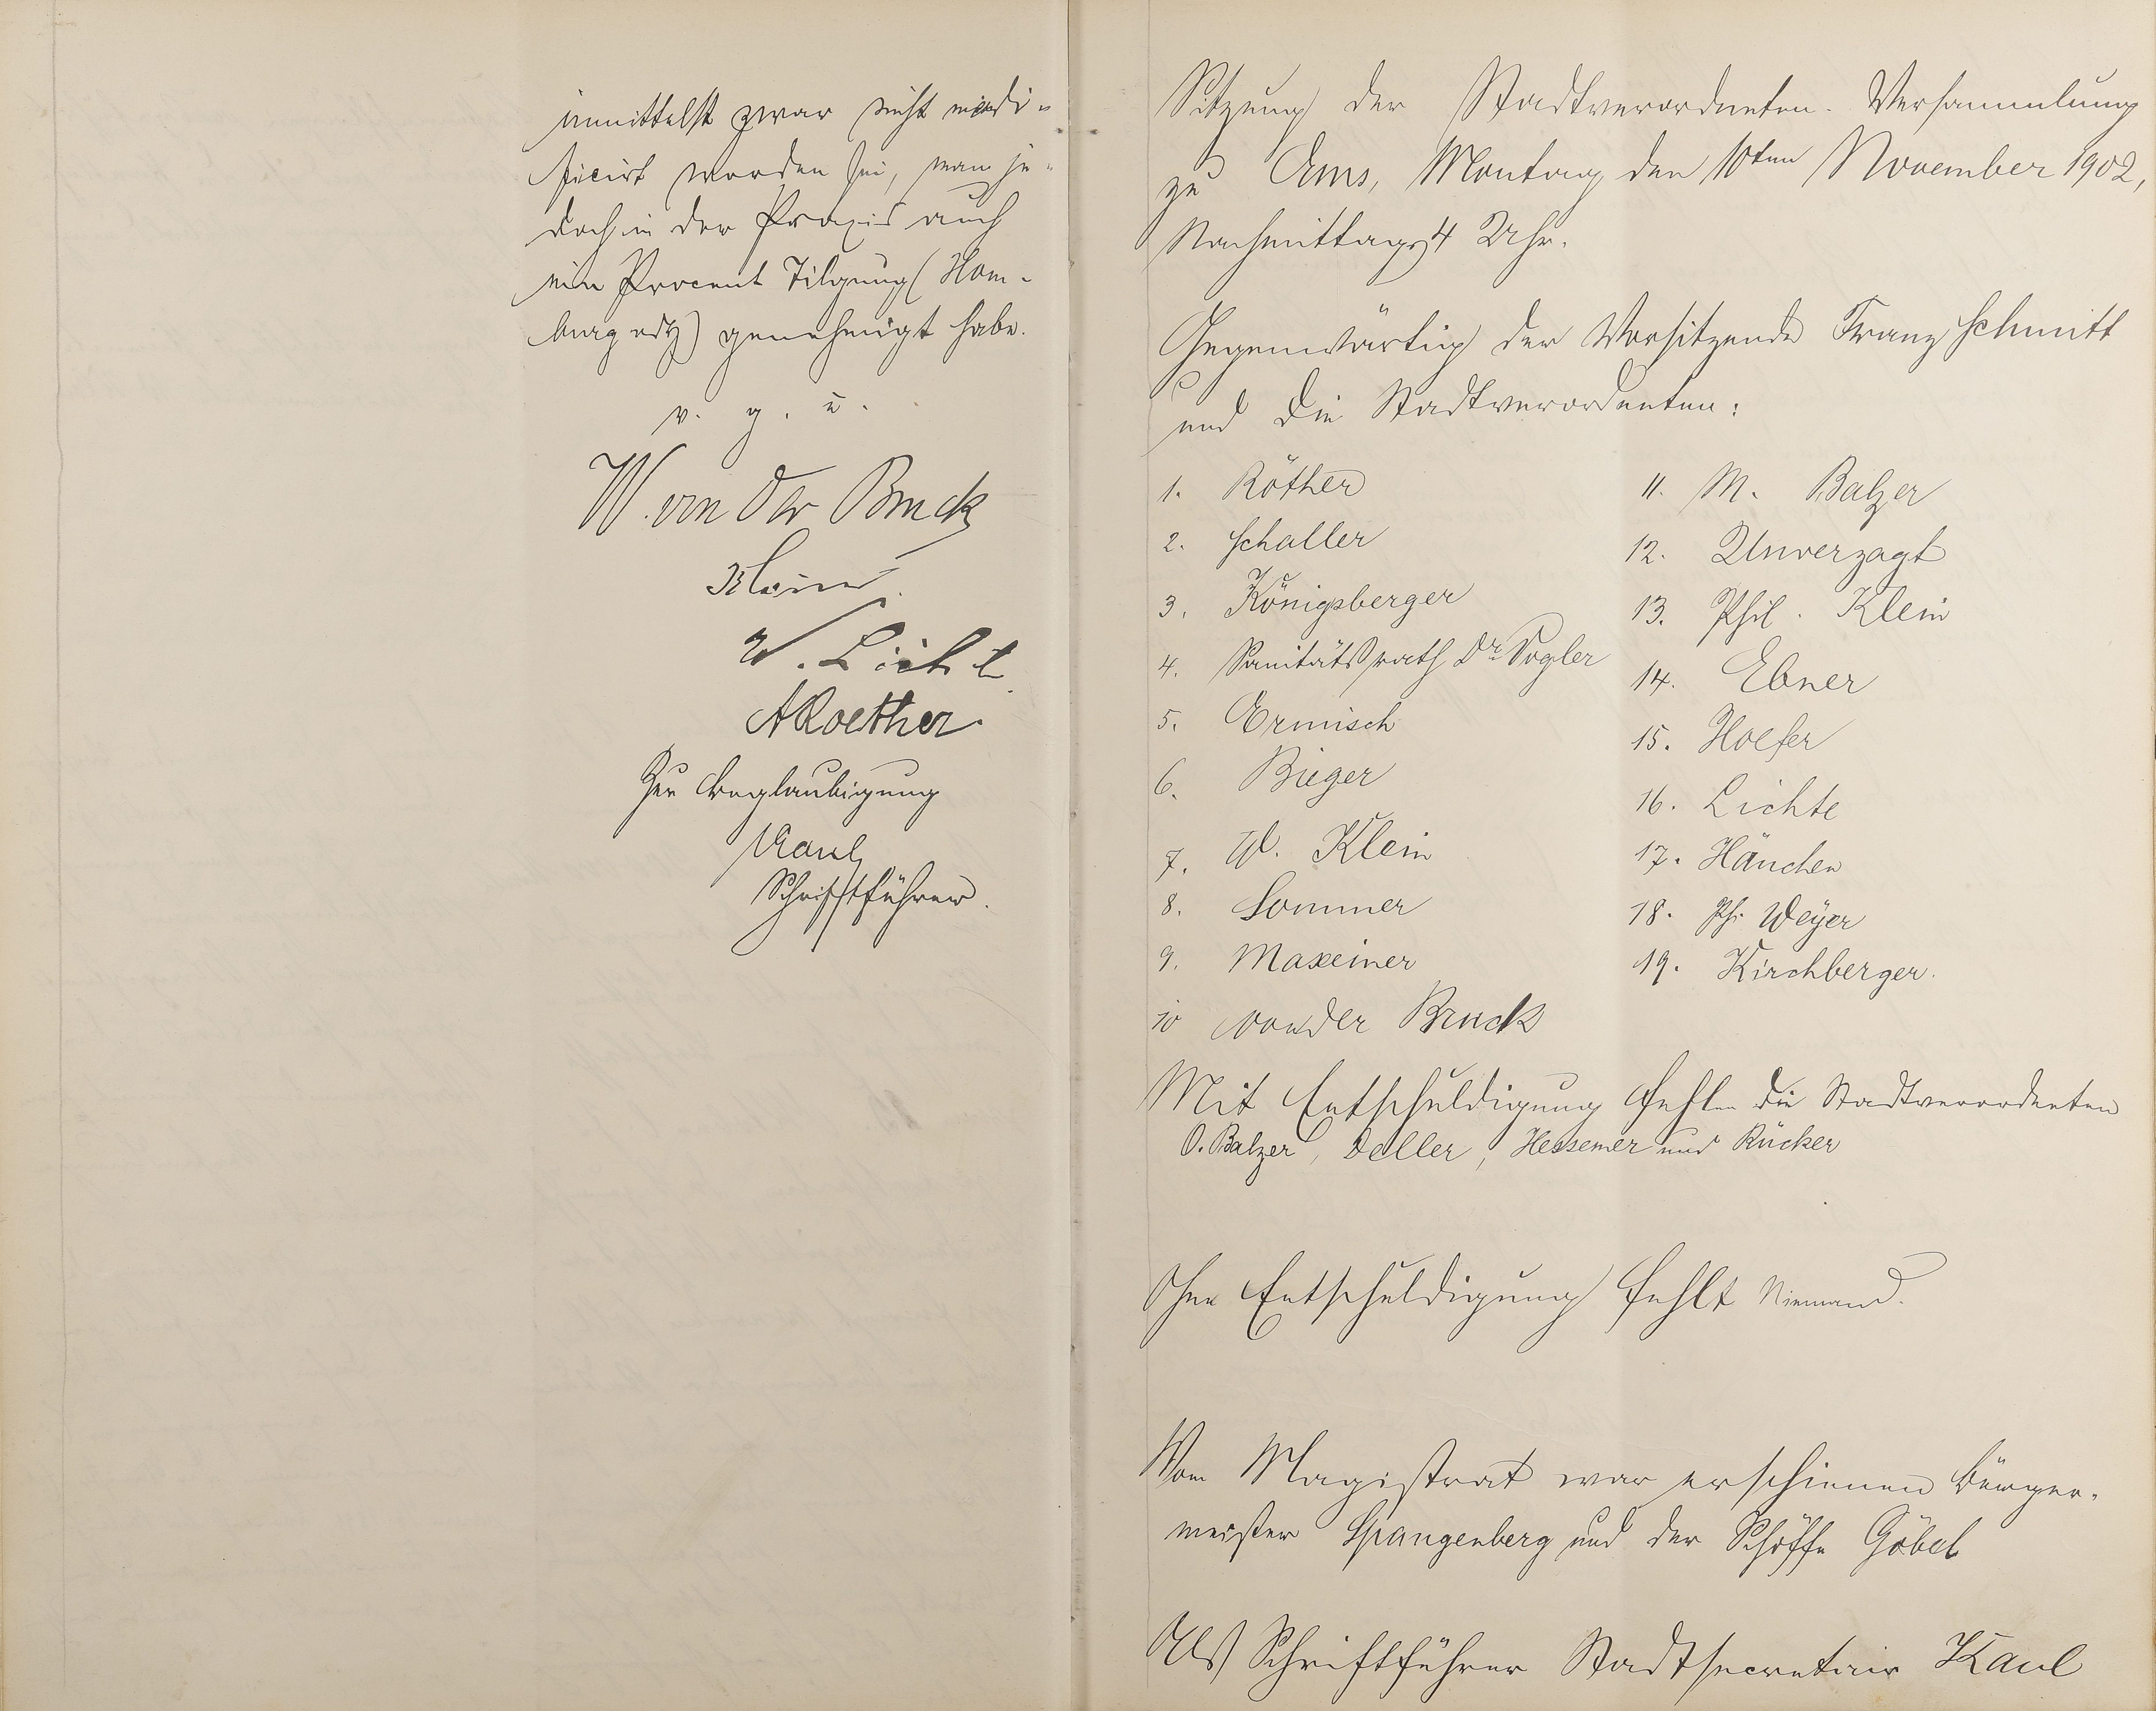 inmittelst zwar nicht modi-
ficirt worden sei, man je-
doch in der Praxis auch
ein Procent Tilgung (Hom-
burg etz) genehmigt habe.
v. g. u.
W. von der Bruck
Klein
W. Licht
A Roether
Zur Beglaubigung
Kaul
Schriftführer.
Sitzung der Stadtverordneten-Versammlung
zu Ems, Montag den 10ten November 1902,
Nachmittags 4 Uhr.
Gegenwärtig der Vorsitzende Franz Schmitt
und die Stadtverordneten:
1. Röther
2. Schaller
3. Königsberger
4. Sanitätsrath Dr Vogler
5. Ermisch
6. Bieger
7. W. Klein
8. Sommer
9. Maxeiner
10 von der Bruck
11. M. Balzer
12. Unverzagt
13. Phil. Klein
14. Ebner
15. Hoefer
16. Lichte
17. Hänchen
18. Ph. Weyer
19. Kirchberger.
Mit Entschuldigung fehlen die Stadtverordneten
O. Balzer, Deller, Hessemer und Rücker
Ohne Entschuldigung fehlt Niemand.
Vom Magistrat war erschienen Bürger-
meister Spangenberg und der Schöffe Göbel
Als Schriftführer Stadtsecretair Kaul